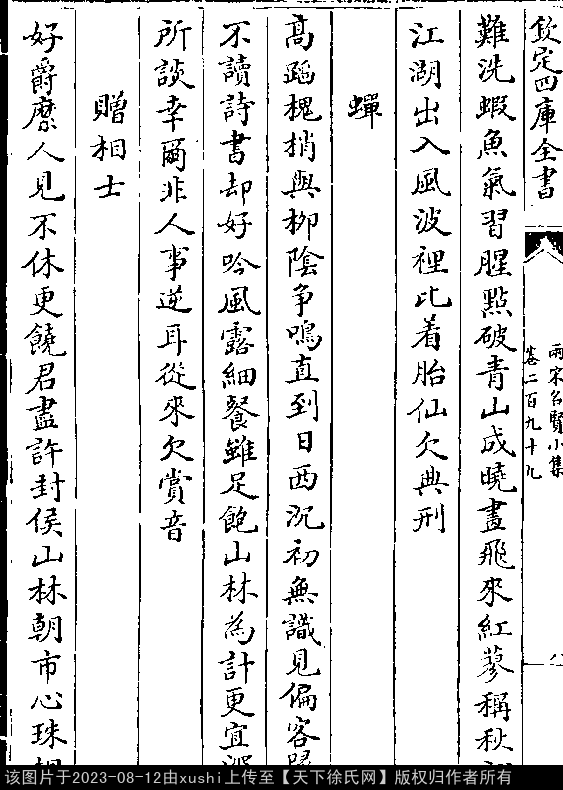 欽定四庫全書
兩宋名賢小集
卷二百九十九
難洗蝦魚氣習腥點破青山成曉畫飛來紅蓼稱秋
江湖出入風波裡比着胎仙欠典刑
蟬
高蹈槐梢與柳陰争鳴直到日西沉初無識見偏客
不讀詩書却好吟風露細餐雖足飽山林為計更宜深
所談幸爾非人事逆耳從來欠賞音
贈相士
好爵縻人見不休更饒君盡許封侯山林朝市心殊
该图片于2023-08-12由xushi上传至【天下徐氏网】版权归作者所有